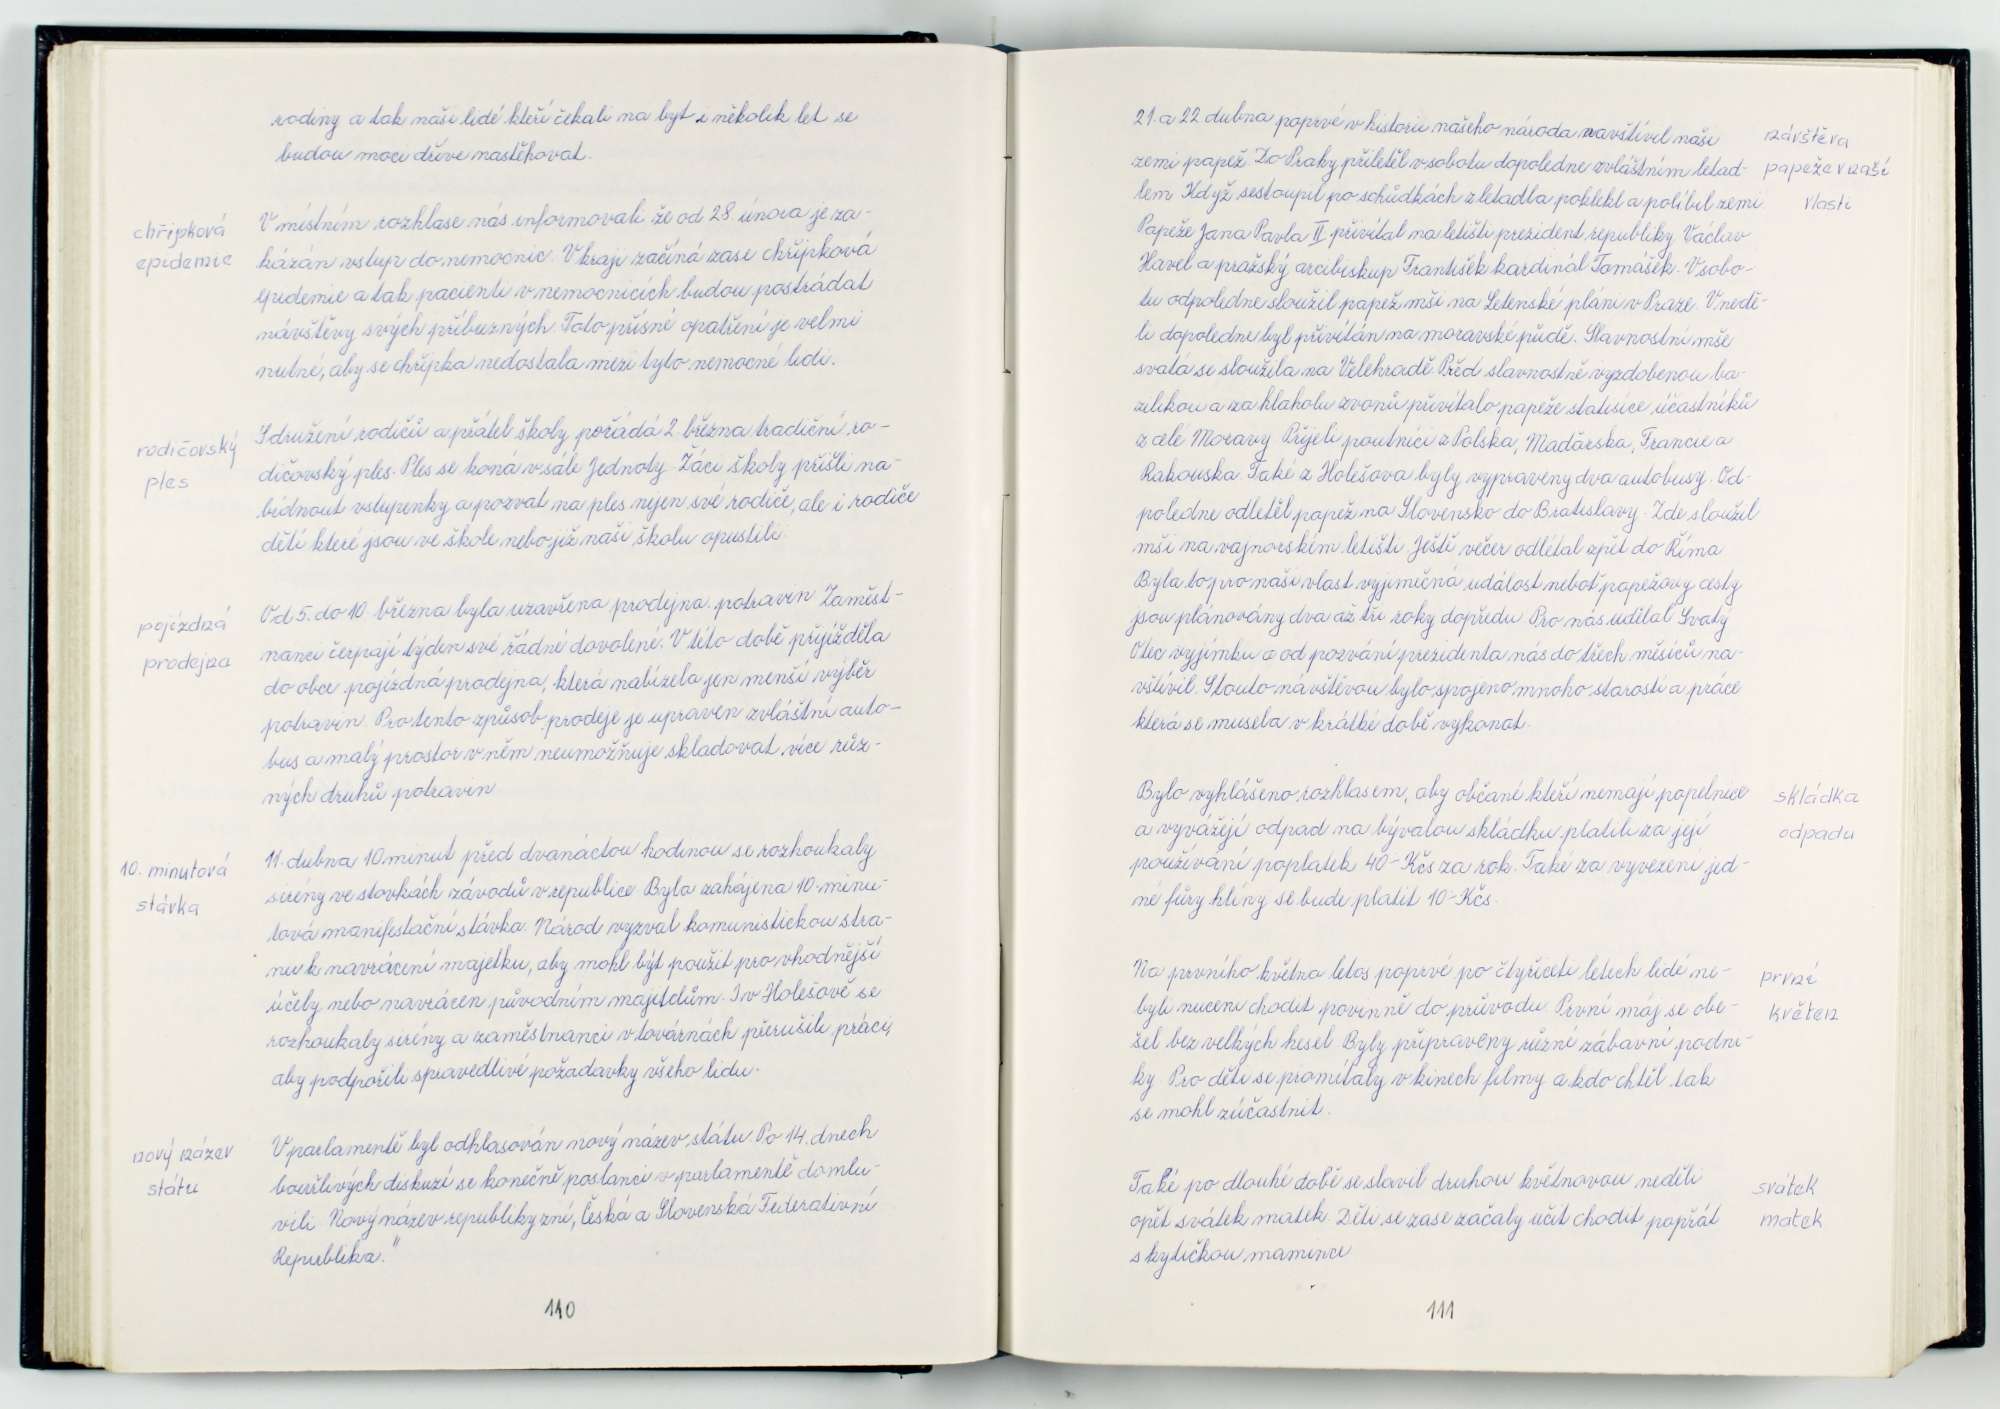 rodiny a tak naši lidé kteří čekali na byt i několik let se
budou moci dříve nastěhovat.
chřipková
epidemie
V místním rozhlase nás informovali že od 28. února je za-
kázán vstup do nemocnic. V kraji začíná zase chřipková
epidemie a tak pacienti v nemocnicích budou postrádat
návštěvy svých příbuzných. Toto přísné opatření je velmi
nutné, aby se chřipka nedostala mezi tyto nemocné lidi.
rodičovský
ples
Sdružení rodičů a přátel školy pořádá 2. března tradiční ro-
dičovský ples. Ples se koná v sále Jednoty. Žáci školy přišli na-
bídnout vstupenky a pozvat na ples nejen své rodiče, ale i rodiče
dětí které jsou ve škole nebo již naši školu opustili.
pojízdná
prodejna
Od 5. do 10. března byla uzavřena prodejna potravin. Zaměst-
nanci čerpají týden své řádné dovolené. V této době přijížděla
do obce pojízdná prodejna, která nabízela jen menší výběr
potravin. Pro tento způsob prodeje je upraven zvláštní auto-
bus a malý prostor v něm neumožňuje skladovat více růz-
ných druhů potravin
10. minutová
stávka
11. dubna 10 minut před dvanáctou hodinou se rozhoukaly
sirény ve stovkách závodů v republice. Byla zahájena 10. minu-
tová manifestační stávka. Národ vyzval komunistickou stra-
nu k navrácení majetku, aby mohl být použit pro vhodnější
účely nebo navrácen původním majitelům. I v Holešově se
rozhoukaly sirény a zaměstnanci v továrnách přerušili práci,
aby podpořili spravedlivé požadavky všeho lidu.
nový název
státu
V parlamentě byl odhlasován nový název státu. Po 14. dnech
bouřlivých diskuzí se konečně poslanci v parlamentě domlu-
vili. Nový název republiky zní, Česká a Slovenská Federativní
Republika."
110
21. a 22. dubna poprvé v historii našeho národa navštívil naši
zemi papež. Do Prahy přiletěl v sobotu dopoledne zvláštním letad-
lem. Když sestoupil po schůdkách z letadla poklekl a políbil zemi.
Papeže Jana Pavla II přivítal na letišti prezident republiky Václav
Havel a pražský arcibiskup František kardinál Tomášek. V sobo-
tu odpoledne sloužil papež mši na Letenské pláni v Praze. V nedě-
li dopoledne byl přivítán na moravské půdě. Slavnostní mše
svatá se sloužila na Velehradě. Před slavnostně vyzdobenou ba-
zilikou a za hlaholu zvonů přivítalo papeže statisíce účastníků
z celé Moravy. Přijeli poutníci z Polska, Maďarska, Francie a
Rakouska. Také z Holešova byly vypraveny dva autobusy. Od-
poledne odletěl papež na Slovensko do Bratislavy. Zde sloužil
mši na vajnorském letišti. Ještě večer odlétal zpět do Říma.
Byla to pro naši vlast vyjímečná událost neboť papežovy cesty
jsou plánovány dva až tři roky dopředu. Pro nás udělal Svatý
Otec vyjímku a od pozvání prezidenta nás do třech měsíců na-
vštívil. S touto návštěvou bylo spojeno mnoho starostí a práce
která se musela v krátké době vykonat.
návštěva
papeže v naší
vlasti
Bylo vyhlášeno rozhlasem, aby občané kteří nemají popelnice
a vyvážejí odpad na bývalou skládku platili za její
používání poplatek 40-Kčs za rok. Také za vyvezení jed-
né fůry hlíny se bude platit 10-Kčs.
skládka
odpadu
Na prvního května letos poprvé po čtyřiceti letech lidé ne-
byli nuceni chodit povinně do průvodu. První máj se obe-
šel bez velkých hesel. Byly připraveny různé zábavní podni-
ky. Pro děti se promítaly v kinech filmy a kdo chtěl tak
se mohl zúčastnit.
první
květen
Také po dlouhé době se slavil druhou květnovou neděli
opět svátek matek. Děti se zase začaly učit chodit popřát
s kytičkou mamince
svátek
matek
111